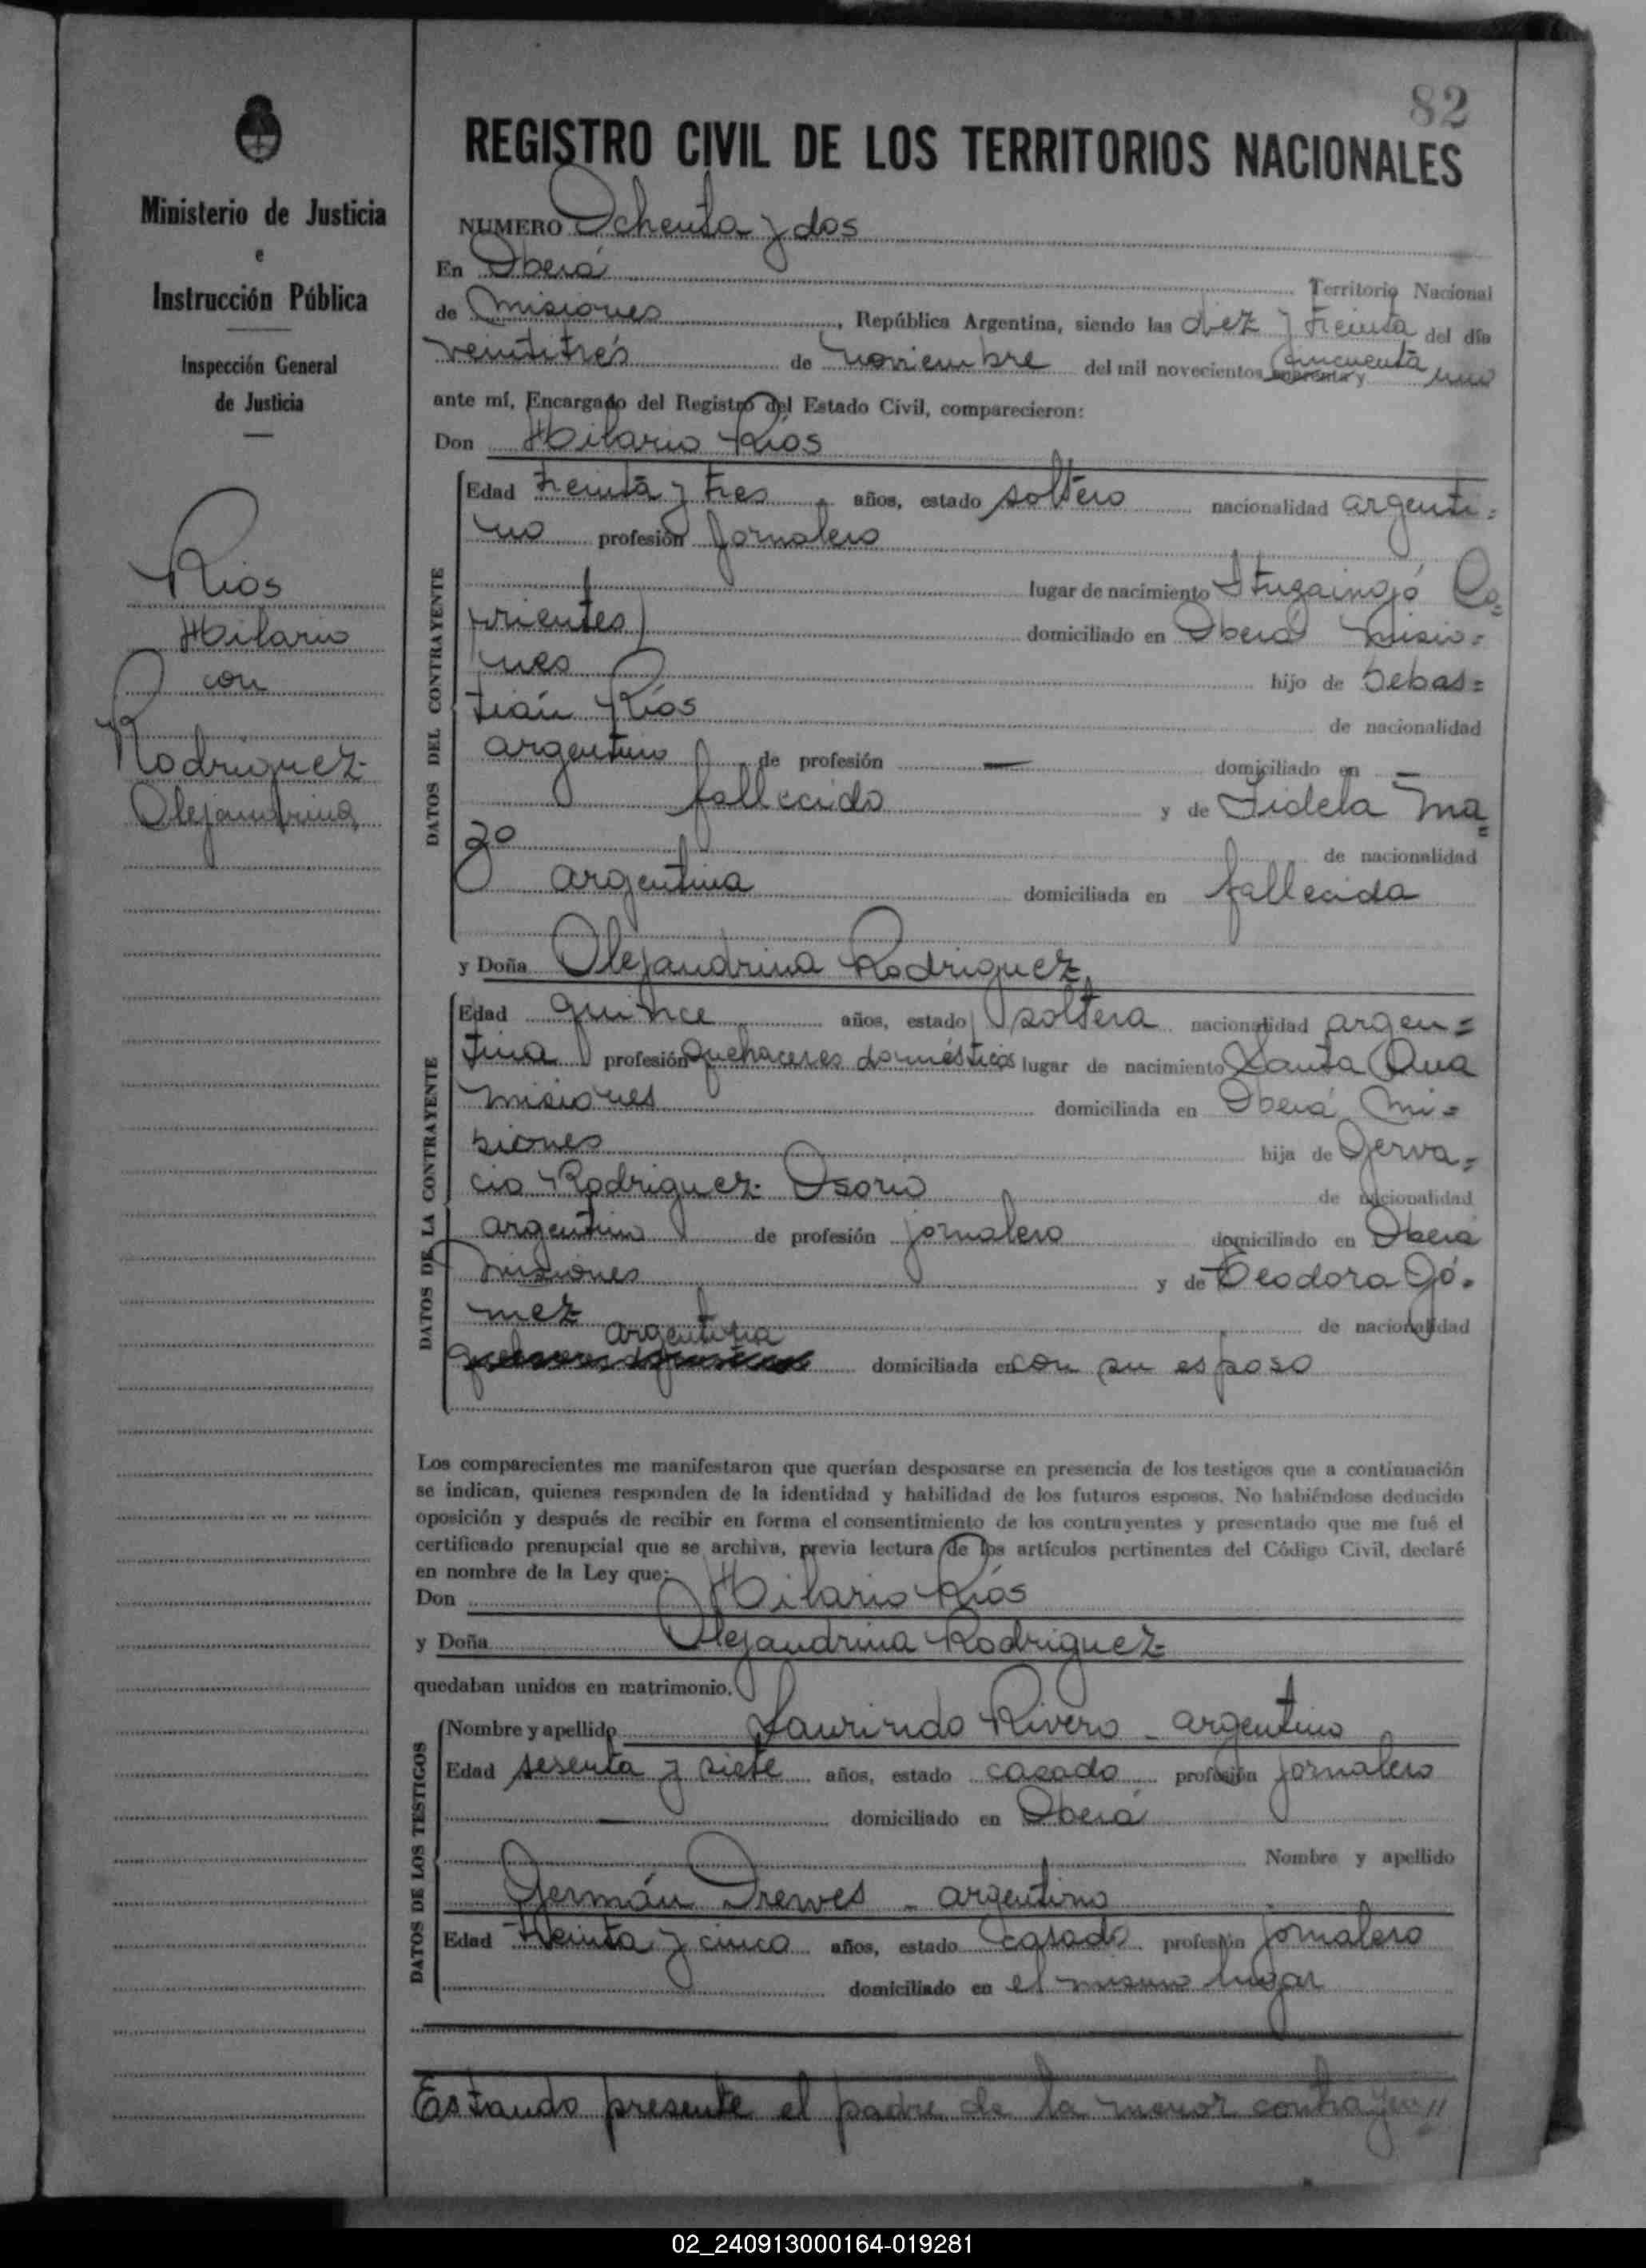 82
REGISTRO CIVIL DE LOS TERRITORIOS NACIONALES
Ministerio de Justicia
e
Instrucción Pública
Inspección General
de Justicia
Rios
Hilario
con
Rodriguez
Alejandrina
NUMERO Ochenta y dos
En Oberá Territorio Nacional
de Misiones, República Argentina, siendo las diez y treinta del día
veintitrés de noviembre del mil novecientos cincuenta y uno
ante mí, Encargado del Registro del Estado Civil, comparecieron:
Don Hilario Ríos
DATOS DEL CONTRAYENTE
Edad treinta y tres años, estado soltero nacionalidad argenti=
no profesión jornalero
lugar de nacimiento Ituzaingó Co=
rrientes) domiciliado en Oberá Misio=
nes hijo de Sebas=
tián Ríos de nacionalidad
argentino de profesión — domiciliado en —
fallecido y de Fidela Ma=
zo de nacionalidad
argentina domiciliada en fallecida
y Doña Alejandrina Rodriguez
DATOS DE LA CONTRAYENTE
Edad quince años, estado soltera nacionalidad argen=
tina profesión quehaceres domésticos lugar de nacimiento Santa Ana
Misiones domiciliada en Oberá Mi=
siones hija de Gerva=
cio Rodriguez Osorio de nacionalidad
argentino de profesión jornalero domiciliado en Oberá
Misiones y de Teodora Gó=
mez de nacionalidad
argentina domiciliada en con su esposo
Los comparecientes me manifestaron que querían desposarse en presencia de los testigos que a continuación
se indican, quienes responden de la identidad y habilidad de los futuros esposos. No habiéndose deducido
oposición y después de recibir en forma el consentimiento de los contrayentes y presentado que me fué el
certificado prenupcial que se archiva, previa lectura de los artículos pertinentes del Código Civil, declaré
en nombre de la Ley que:
Don Hilario Ríos
y Doña Alejandrina Rodriguez
quedaban unidos en matrimonio.
DATOS DE LOS TESTIGOS
Nombre y apellido Laurindo Rivero - argentino
Edad sesenta y siete años, estado casado profesión jornalero
— domiciliado en Oberá
Nombre y apellido
Germán Drewes - argentino
Edad treinta y cinco años, estado casado profesión jornalero
domiciliado en el mismo lugar
Estando presente el padre de la menor contrayen//
02_240913000164-019281